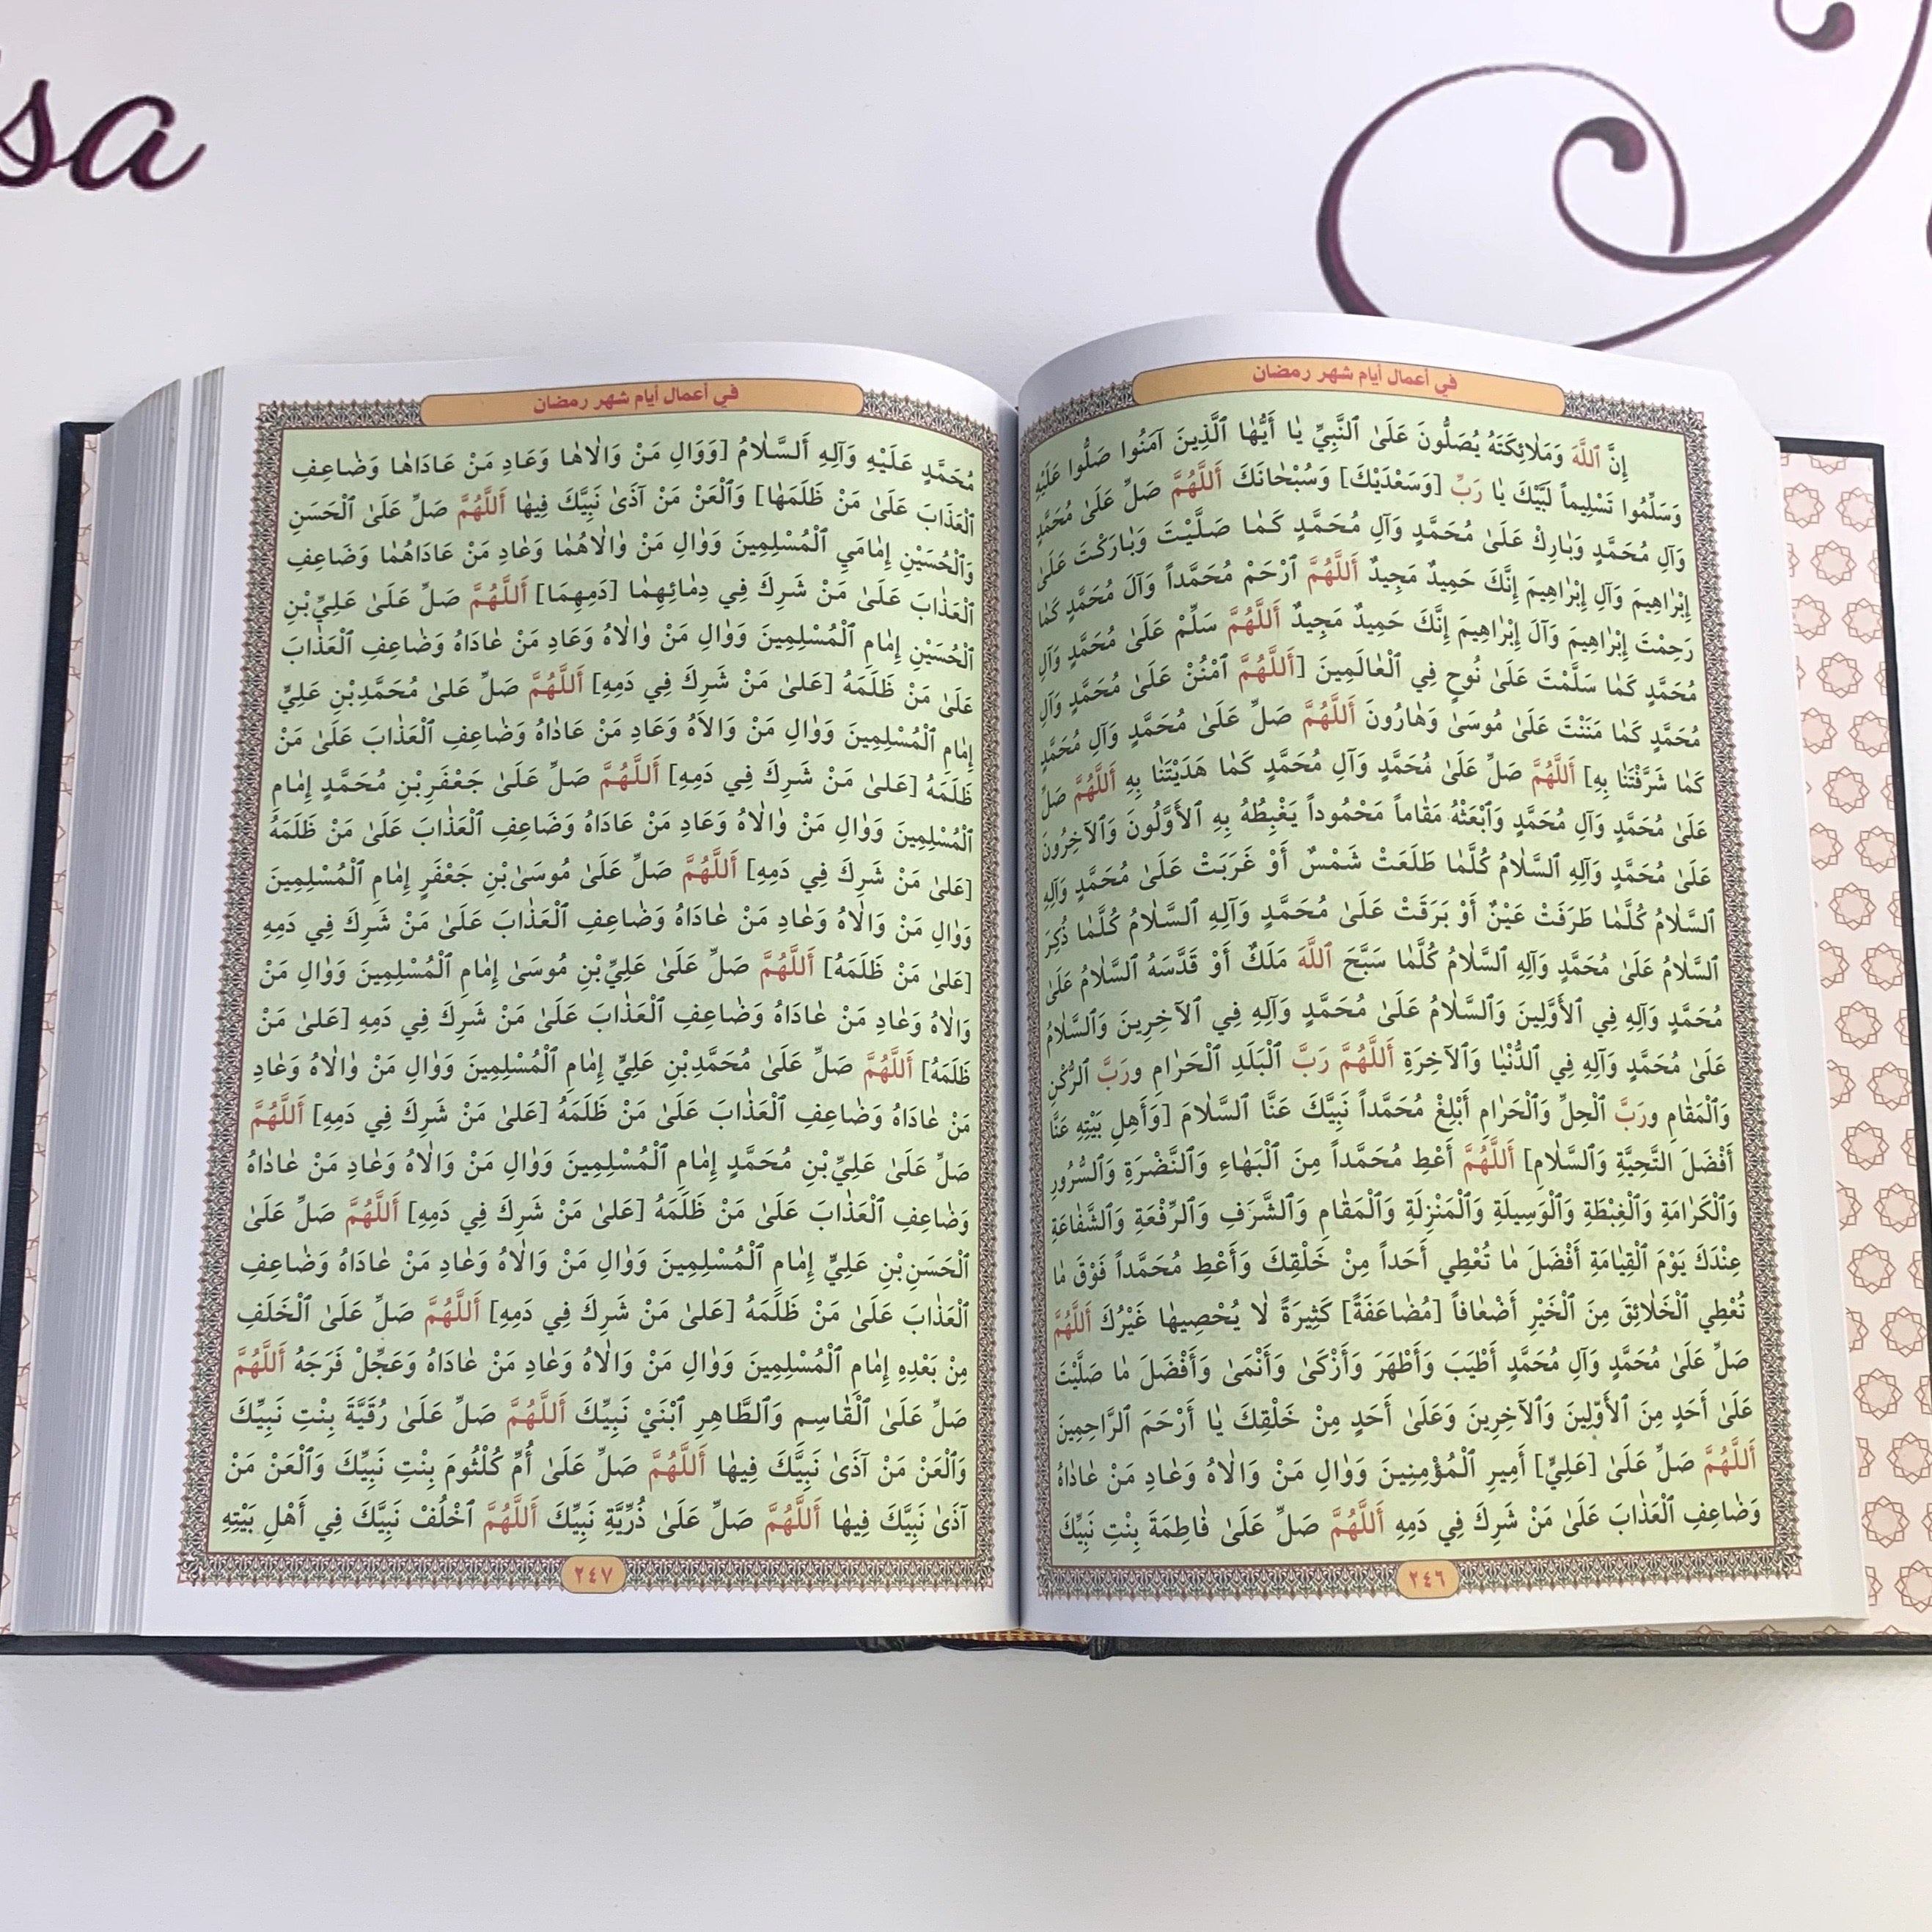 sa
في أعمال أيام شهر رمضان
إِنَّ ٱللَّهَ وَمَلَائِكَتَهُ يُصَلُّونَ عَلَىٰ ٱلنَّبِيِّ يٰا أَيُّهٰا ٱلَّذِينَ آمَنُوا صَلُّوا عَلَيْهِ
وَسَلِّمُوا تَسْلِيماً لَبَّيْكَ يٰا رَبِّ [وَسَعْدَيْكَ] وَسُبْحٰانَكَ أَللَّهُمَّ صَلِّ عَلىٰ مُحَمَّدٍ
وَآلِ مُحَمَّدٍ وَبٰارِكْ عَلىٰ مُحَمَّدٍ وَآلِ مُحَمَّدٍ كَمٰا صَلَّيْتَ وَبٰارَكْتَ عَلىٰ
إِبْرٰاهِيمَ وَآلِ إِبْرٰاهِيمَ إِنَّكَ حَمِيدٌ مَجِيدٌ أَللَّهُمَّ ٱرْحَمْ مُحَمَّداً وَآلَ مُحَمَّدٍ كَمٰا
رَحِمْتَ إِبْرٰاهِيمَ وَآلَ إِبْرٰاهِيمَ إِنَّكَ حَمِيدٌ مَجِيدٌ أَللَّهُمَّ سَلِّمْ عَلَىٰ مُحَمَّدٍ وَآلِ
مُحَمَّدٍ كَمٰا سَلَّمْتَ عَلَىٰ نُوحٍ فِي ٱلْعٰالَمِينَ [أَللَّهُمَّ ٱمْنُنْ عَلَىٰ مُحَمَّدٍ وَآلِ
مُحَمَّدٍ كَمٰا مَنَنْتَ عَلىٰ مُوسَىٰ وَهٰارُونَ أَللَّهُمَّ صَلِّ عَلَىٰ مُحَمَّدٍ وَآلِ مُحَمَّدٍ
كَمٰا شَرَّفْتَنٰا بِهِ] أَللَّهُمَّ صَلِّ عَلَىٰ مُحَمَّدٍ وَآلِ مُحَمَّدٍ كَمٰا هَدَيْتَنٰا بِهِ أَللَّهُمَّ صَلِّ
عَلىٰ مُحَمَّدٍ وَآلِ مُحَمَّدٍ وَٱبْعَثْهُ مَقٰاماً مَحْمُوداً يَغْبِطُهُ بِهِ ٱلأَوَّلُونَ وَٱلآخِرُونَ
عَلىٰ مُحَمَّدٍ وَآلِهِ ٱلسَّلٰامُ كُلَّمٰا طَلَعَتْ شَمْسٌ أَوْ غَرَبَتْ عَلىٰ مُحَمَّدٍ وَآلِهِ
ٱلسَّلٰامُ كُلَّمٰا طَرَفَتْ عَيْنٌ أَوْ بَرَقَتْ عَلىٰ مُحَمَّدٍ وَآلِهِ ٱلسَّلٰامُ كُلَّمٰا ذُكِرَ
ٱلسَّلٰامُ عَلىٰ مُحَمَّدٍ وَآلِهِ ٱلسَّلٰامُ كُلَّمٰا سَبَّحَ ٱللَّهَ مَلَكٌ أَوْ قَدَّسَهُ ٱلسَّلٰامُ عَلىٰ
مُحَمَّدٍ وَآلِهِ فِي ٱلأَوَّلِينَ وَٱلسَّلٰامُ عَلىٰ مُحَمَّدٍ وَآلِهِ فِي ٱلآخِرِينَ وَٱلسَّلٰامُ
عَلىٰ مُحَمَّدٍ وَآلِهِ فِي ٱلدُّنْيٰا وَٱلآخِرَةِ أَللَّهُمَّ رَبَّ ٱلْبَلَدِ ٱلْحَرٰامِ وَرَبَّ ٱلرُّكْنِ
وَٱلْمَقٰامِ وَرَبَّ ٱلْحِلِّ وَٱلْحَرٰامِ أَبْلِغْ مُحَمَّداً نَبِيَّكَ عَنَّا ٱلسَّلٰامَ [وَأَهِلِ بَيْتِهِ عَنَّا
أَفْضَلَ ٱلتَّحِيَّةِ وَٱلسَّلٰامِ] أَللَّهُمَّ أَعْطِ مُحَمَّداً مِنَ ٱلْبَهٰاءِ وَٱلنَّضْرَةِ وَٱلسُّرُورِ
وَٱلْكَرٰامَةِ وَٱلْغِبْطَةِ وَٱلْوَسِيلَةِ وَٱلْمَنْزِلَةِ وَٱلْمَقٰامِ وَٱلشَّرَفِ وَٱلرِّفْعَةِ وَٱلشَّفٰاعَةِ
عِنْدَكَ يَوْمَ ٱلْقِيٰامَةِ أَفْضَلَ مٰا تُعْطِي أَحَداً مِنْ خَلْقِكَ وَأَعْطِ مُحَمَّداً فَوْقَ مٰا
تُعْطِي ٱلْخَلٰائِقَ مِنَ ٱلْخَيْرِ أَضْعٰافاً [مُضٰاعَفَةً] كَثِيرَةً لٰا يُحْصِيهٰا غَيْرُكَ أَللَّهُمَّ
صَلِّ عَلىٰ مُحَمَّدٍ وَآلِ مُحَمَّدٍ أَطْيَبَ وَأَطْهَرَ وَأَزْكىٰ وَأَنْمىٰ وَأَفْضَلَ مٰا صَلَّيْتَ
عَلىٰ أَحَدٍ مِنَ ٱلأَوَّلِينَ وَٱلآخِرِينَ وَعَلىٰ أَحَدٍ مِنْ خَلْقِكَ يٰا أَرْحَمَ ٱلرَّاحِمِينَ
أَللَّهُمَّ صَلِّ عَلىٰ [عَلِيٍّ] أَمِيرِ ٱلْمُؤْمِنِينَ وَوَالِ مَنْ وَالٰاهُ وَعٰادِ مَنْ عٰادٰاهُ
وَضٰاعِفِ ٱلْعَذٰابَ عَلىٰ مَنْ شَرِكَ فِي دَمِهِ أَللَّهُمَّ صَلِّ عَلىٰ فٰاطِمَةَ بِنْتِ نَبِيِّكَ
٢٤٦
في أعمال أيام شهر رمضان
مُحَمَّدٍ عَلَيْهِ وَآلِهِ أَلسَّلٰامُ [وَوَالِ مَنْ وَالٰاهٰا وَعَادِ مَنْ عَادَاهٰا وَضٰاعِفِ
ٱلْعَذَابَ عَلىٰ مَنْ ظَلَمَهٰا] وَٱلْعَنْ مَنْ آذَىٰ نَبِيَّكَ فِيهٰا أَللَّهُمَّ صَلِّ عَلىٰ ٱلْحَسَنِ
وَٱلْحُسَيْنِ إِمٰامَيِ ٱلْمُسْلِمِينَ وَوٰالِ مَنْ وٰالٰاهُمٰا وَعٰادِ مَنْ عَادَاهُمٰا وَضَاعِفِ
ٱلْعَذٰابَ عَلىٰ مَنْ شَرِكَ فِي دِمٰائِهِمٰا [دَمِهِمَا] أَللَّهُمَّ صَلِّ عَلىٰ عَلِيِّ بْنِ
ٱلْحُسَيْنِ إِمٰامِ ٱلْمُسْلِمِينَ وَوٰالِ مَنْ وٰالٰاهُ وَعَادِ مَنْ عٰادَاهُ وَضٰاعِفِ ٱلْعَذٰابَ
عَلىٰ مَنْ ظَلَمَهُ [عَلىٰ مَنْ شَرِكَ فِي دَمِهِ] أَللَّهُمَّ صَلِّ عَلىٰ مُحَمَّدِبْنِ عَلِيٍّ
إِمٰامِ ٱلْمُسْلِمِينَ وَوٰالِ مَنْ وَالاَهُ وَعَادِ مَنْ عَادٰاهُ وَضٰاعِفِ ٱلْعَذٰابَ عَلىٰ مَنْ
ظَلَمَهُ [عَلىٰ مَنْ شَرِكَ فِي دَمِهِ] أَللَّهُمَّ صَلِّ عَلَىٰ جَعْفَرِبْنِ مُحَمَّدٍ إِمٰامِ
ٱلْمُسْلِمِينَ وَوَالِ مَنْ وٰالٰاهُ وَعَادِ مَنْ عَادَاهُ وَضَاعِفِ ٱلْعَذٰابَ عَلىٰ مَنْ ظَلَمَهُ
[عَلىٰ مَنْ شَرِكَ فِي دَمِهِ] أَللَّهُمَّ صَلِّ عَلىٰ مُوسَىٰ بْنِ جَعْفَرٍ إِمٰامِ ٱلْمُسْلِمِينَ
وَوٰالِ مَنْ وَالٰاهُ وَعٰادِ مَنْ عٰادَاهُ وَضٰاعِفِ ٱلْعَذٰابَ عَلىٰ مَنْ شَرِكَ فِي دَمِهِ
[عَلىٰ مَنْ ظَلَمَهُ] أَللَّهُمَّ صَلِّ عَلىٰ عَلِيِّ بْنِ مُوسَىٰ إِمٰامِ ٱلْمُسْلِمِينَ وَوَالِ مَنْ
وَالٰاهُ وَعٰادِ مَنْ عٰادَاهُ وَضٰاعِفِ ٱلْعَذٰابَ عَلىٰ مَنْ شَرِكَ فِي دَمِهِ [عَلىٰ مَنْ
ظَلَمَهُ] أَللَّهُمَّ صَلِّ عَلىٰ مُحَمَّدِبْنِ عَلِيٍّ إِمٰامِ ٱلْمُسْلِمِينَ وَوَالِ مَنْ وٰالٰاهُ وَعٰادِ
مَنْ عٰادَاهُ وَضٰاعِفِ ٱلْعَذٰابَ عَلىٰ مَنْ ظَلَمَهُ [عَلىٰ مَنْ شَرِكَ فِي دَمِهِ] أَللَّهُمَّ
صَلِّ عَلىٰ عَلِيِّ بْنِ مُحَمَّدٍ إِمٰامِ ٱلْمُسْلِمِينَ وَوٰالِ مَنْ وَالٰاهُ وَعٰادِ مَنْ عٰادٰاهُ
وَضٰاعِفِ ٱلْعَذٰابَ عَلىٰ مَنْ ظَلَمَهُ [عَلىٰ مَنْ شَرِكَ فِي دَمِهِ] أَللَّهُمَّ صَلِّ عَلىٰ
ٱلْحَسَنِ بْنِ عَلِيٍّ إِمٰامِ ٱلْمُسْلِمِينَ وَوٰالِ مَنْ وَالٰاهُ وَعٰادِ مَنْ عٰادَاهُ وَضٰاعِفِ
ٱلْعَذٰابَ عَلىٰ مَنْ ظَلَمَهُ [عَلىٰ مَنْ شَرِكَ فِي دَمِهِ] أَللَّهُمَّ صَلِّ عَلىٰ ٱلْخَلَفِ
مِنْ بَعْدِهِ إِمٰامِ ٱلْمُسْلِمِينَ وَوَالِ مَنْ وَالٰاهُ وَعٰادِ مَنْ عٰادَاهُ وَعَجِّلْ فَرَجَهُ أَللَّهُمَّ
صَلِّ عَلىٰ ٱلْقٰاسِمِ وَٱلطَّاهِرِ ٱبْنَيْ نَبِيِّكَ أَللَّهُمَّ صَلِّ عَلىٰ رُقَيَّةَ بِنْتِ نَبِيِّكَ
وَٱلْعَنْ مَنْ آذَىٰ نَبِيَّكَ فِيهٰا أَللَّهُمَّ صَلِّ عَلىٰ أُمِّ كُلْثُومَ بِنْتِ نَبِيِّكَ وَٱلْعَنْ مَنْ
آذَىٰ نَبِيَّكَ فِيهٰا أَللَّهُمَّ صَلِّ عَلىٰ ذُرِّيَّةِ نَبِيِّكَ أَللَّهُمَّ ٱخْلُفْ نَبِيَّكَ فِي أَهْلِ بَيْتِهِ
٢٤٧